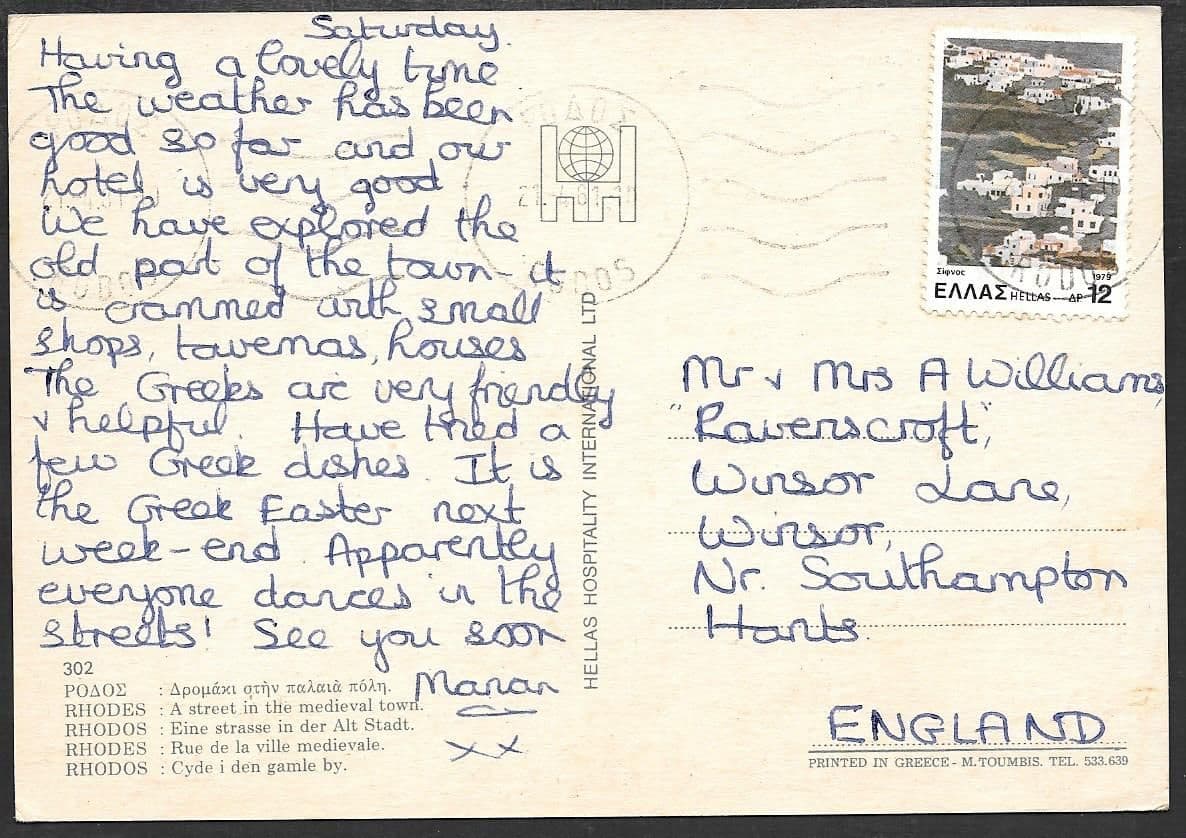 Saturday.
Having a lovely time
The weather has been
good so far and our
hotel is very good
We have explored the
old part of the town - it
is crammed with small
shops, tavernas, houses
The Greeks are very friendly
& helpful. Have tried a
few Greek dishes. It is
the Greek Easter next
week-end. Apparently
everyone dances in the
streets! See you soon
Marian
xx
302
ΡΟΔΟΣ : Δρομάκι στὴν παλαιὰ πόλη.
RHODES : A street in the medieval town.
RHODOS : Eine strasse in der Alt Stadt.
RHODES : Rue de la ville medievale.
RHODOS : Cyde i den gamle by.
HELLAS HOSPITALITY INTERNATIONAL LTD
ΡΟΔΟΣ
21.4.81.10
RODOS
Σίφνος 1979
ΕΛΛΑΣ HELLAS ΔΡ 12
RODOS
Mr & Mrs A Williams,
"Ravenscroft",
Winsor Lane,
Winsor,
Nr. Southampton
Hants.
ENGLAND
PRINTED IN GREECE - M.TOUMBIS. TEL. 533.639